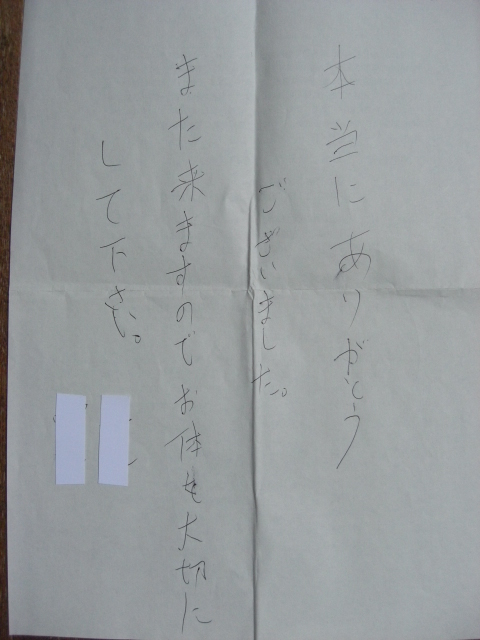 本当にありがとう
ございました。
また来ますのでお体を大切に
して下さい。